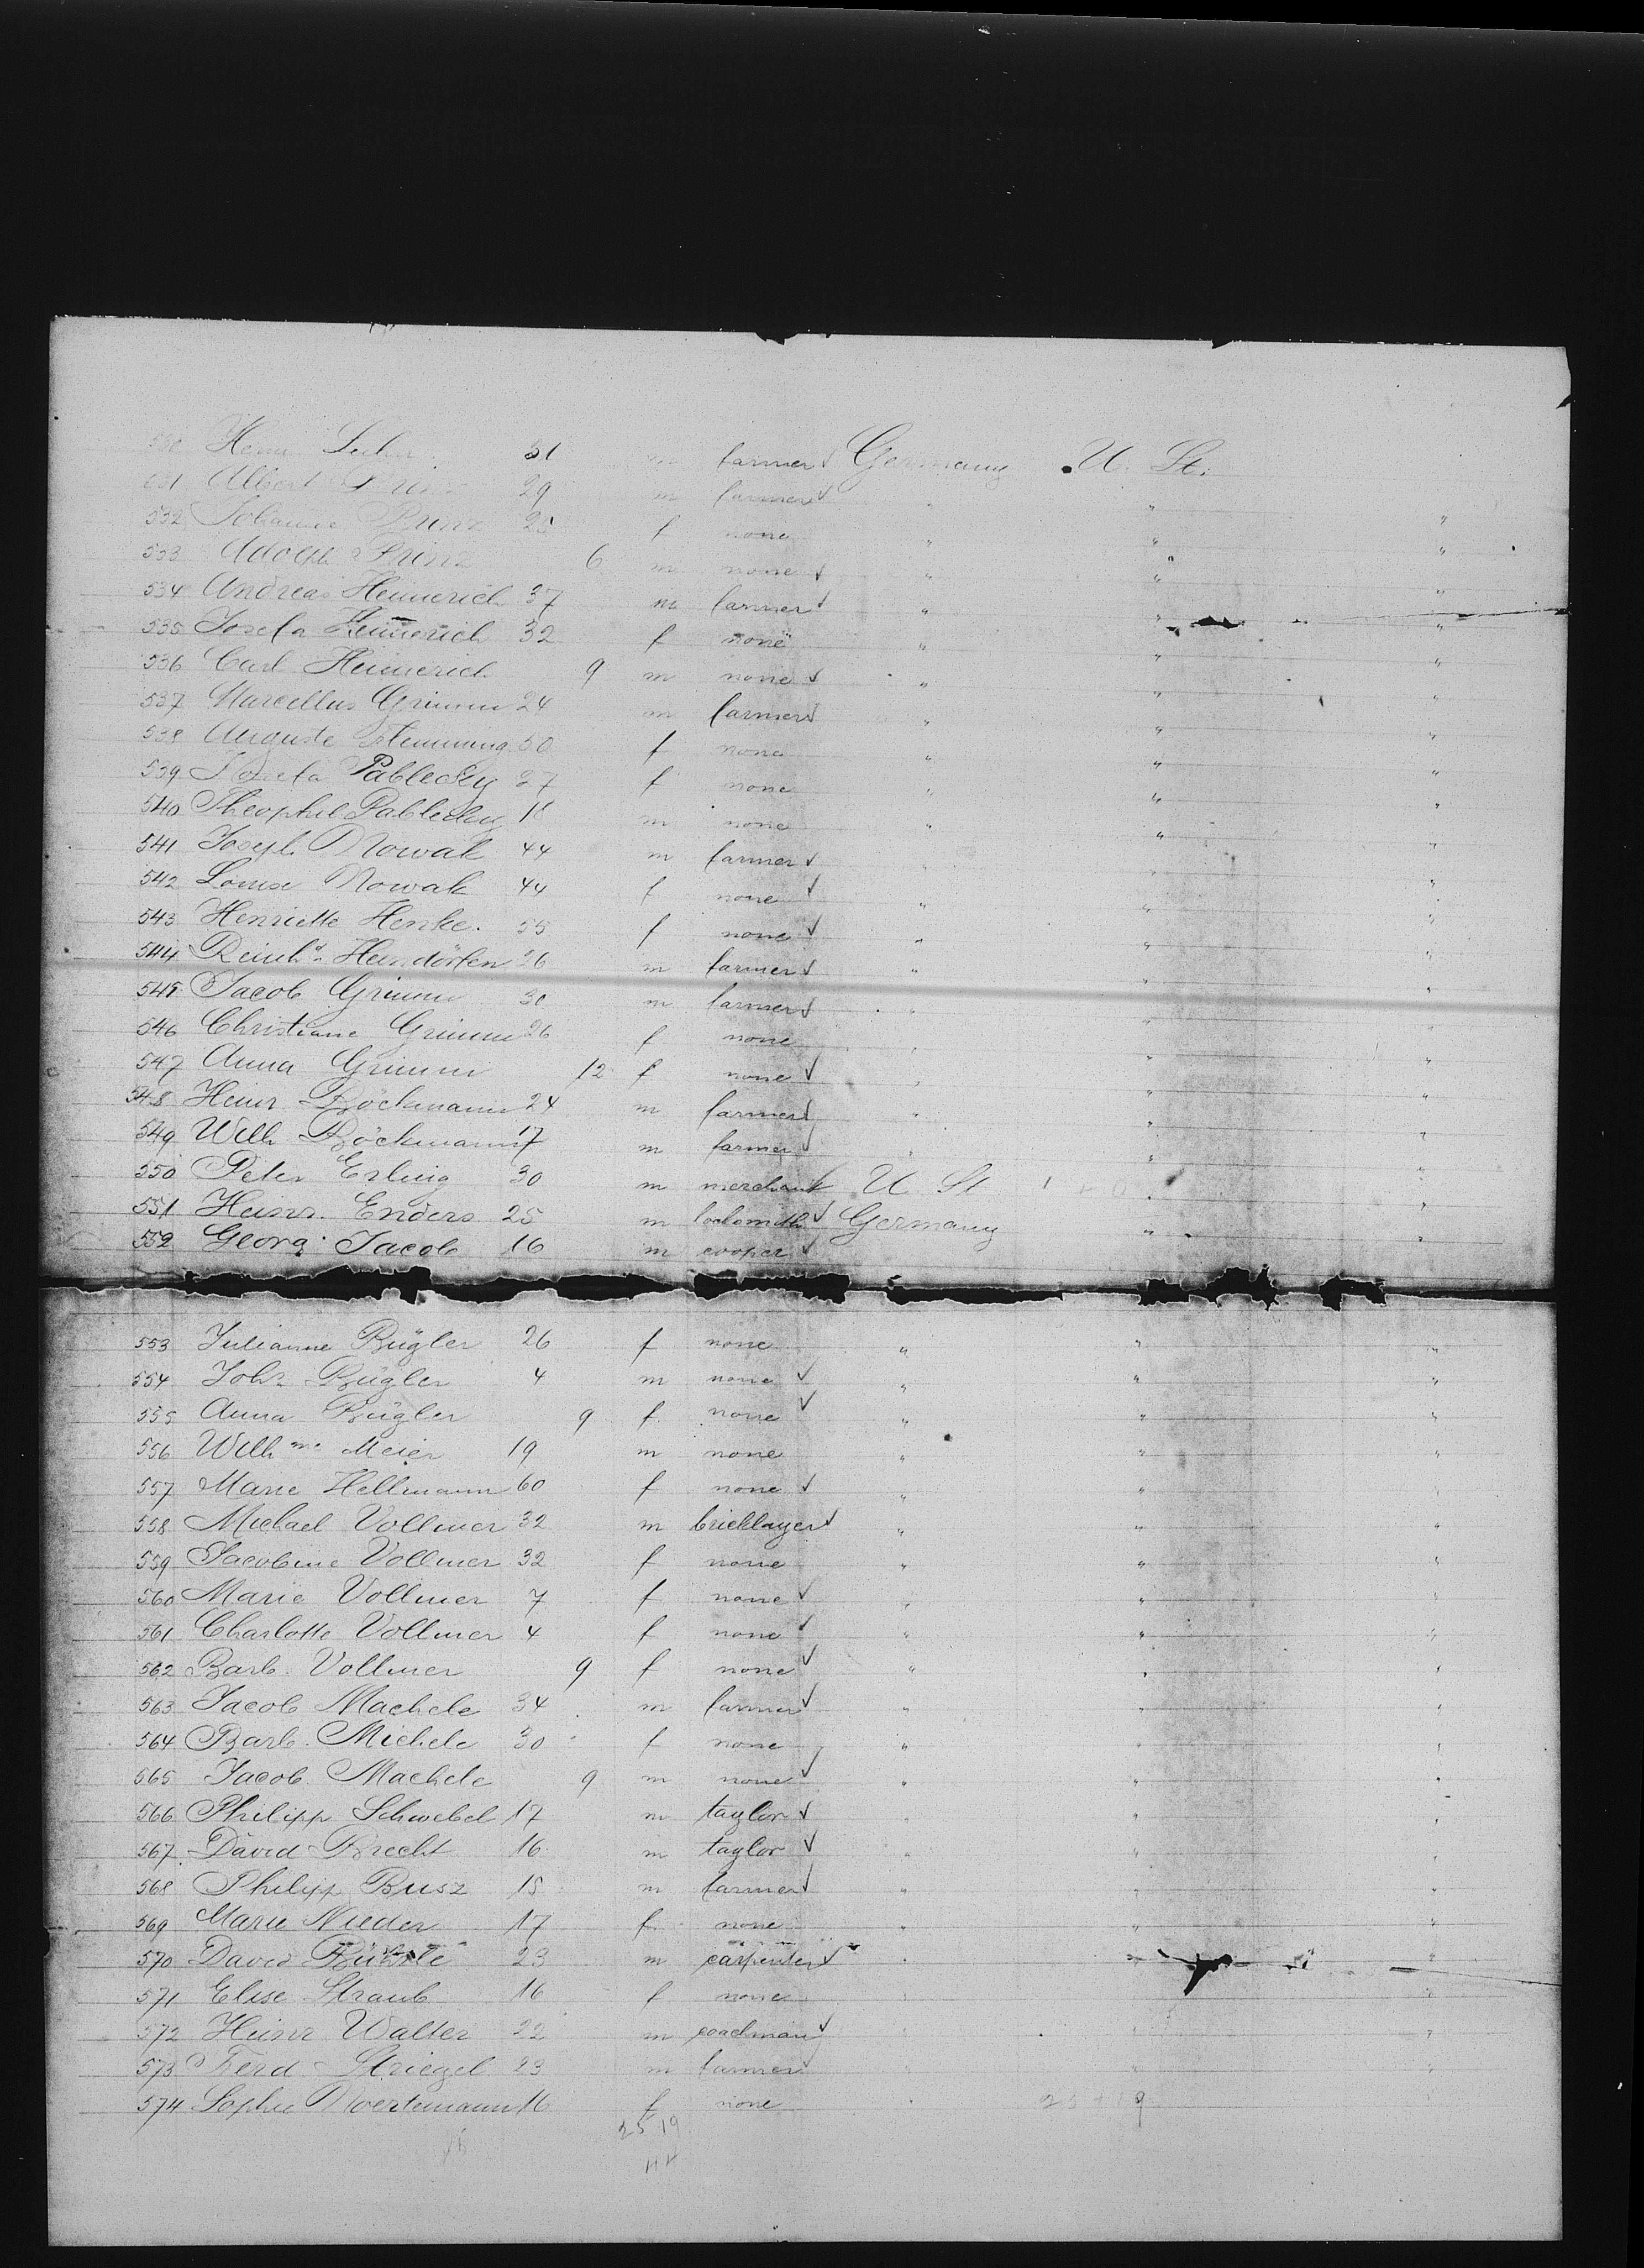 530 Heinr. 31 m farmer ✓ Germany U. St.
531 Albert Prinz 29 m farmer ✓ " " "
532 Johanne Prinz 25 f none " " "
533 Adolph Prinz 6 m none ✓ " " "
534 Andreas Heimerich 37 m farmer ✓ " " "
535 Josefa Heimerich 32 f none " " "
536 Carl Heimerich 9 m none ✓ " " "
537 Marcellus Grimm 24 m farmer ✓ " " "
538 Auguste 50 f none " " "
539 Josefa Pablecky 27 f none " " "
540 Theophil Pablecky 18 m none " " "
541 Joseph Nowak 44 m farmer ✓ " " "
542 Louise Nowak 44 f none ✓ " " "
543 Henriette Henke. 55 f none ✓ " " "
544 Reinhd 26 m farmer ✓ " " "
545 Jacob Grimm 30 m farmer ✓ " " "
546 Christiane Grimm 26 f none " " "
547 Anna Grimm 12 f none ✓ " " "
548 Heinr Böckmann 24 m farmer ✓ " " "
549 Wilh Böckmann 17 m farmer ✓ " " "
550 Peter Erling 30 m merchant U St " "
551 Heinr. Enders 25 m locksmith ✓ Germany " "
552 Georg Jacob 16 m cooper ✓
553 Julianne Bügler 26 f none " " "
554 Johs Bügler 4 m none ✓ " " "
555 Anna Bügler 9 f none ✓ " " "
556 Wilhme Meier 19 m none " " "
557 Marie Hellmann 60 f none ✓ " " "
558 Michael Vollmer 32 m bricklayer ✓ " " "
559 Jacobine Vollmer 32 f none " " "
560 Marie Vollmer 7 f none ✓ " " "
561 Charlotte Vollmer 4 f none ✓ " " "
562 Barb. Vollmer 9 f none ✓ " " "
563 Jacob Machele 34 m farmer ✓ " " "
564 Barb. Michele 30 f none " " "
565 Jacob Machele 9 m none ✓ " " "
566 Philipp Schwebel 17 m taylor ✓ " " "
567 David Brecht 16 m taylor ✓ " " "
568 Philipp Busz 15 m farmer ✓ " " "
569 Marie Nieder 17 f none " " "
570 David 23 m carpenter ✓ " " "
571 Elise Straub 16 f none " " "
572 Heinr Walter 22 m coachman ✓ " " "
573 Ferd Striegel 23 m farmer ✓ " " "
574 Sophie Noertemann 16 f none 25 + 19
25 19
44